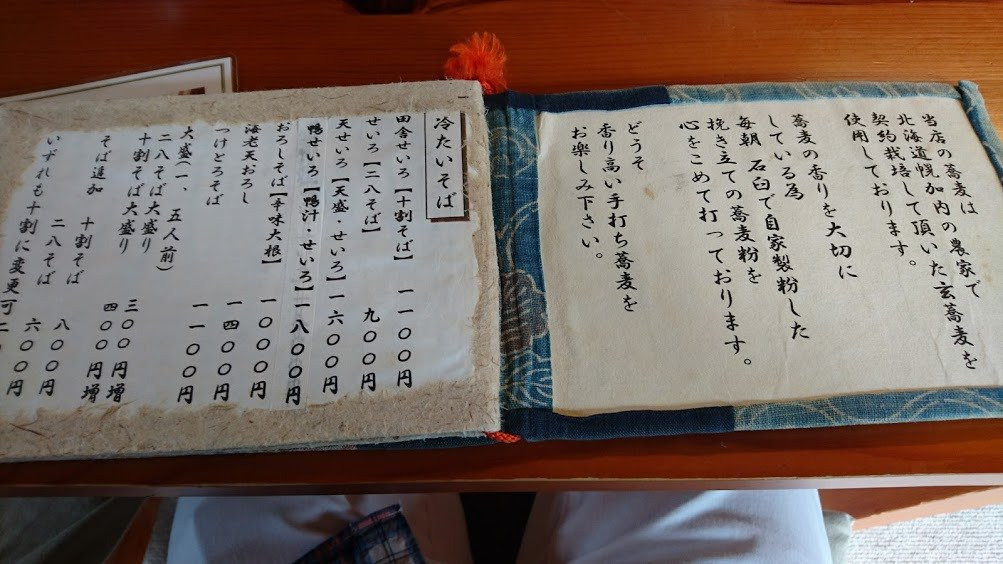 当店の蕎麦は
北海道幌加内の農家で
契約栽培して頂いた玄蕎麦を
使用しております。
蕎麦の香りを大切に
している為
毎朝 石臼で自家製粉した
挽き立ての蕎麦粉を
心をこめて打っております。
どうぞ
香り高い手打ち蕎麦を
お楽しみ下さい。
冷たいそば
田舎せいろ【十割そば】 一一〇〇円
せいろ【二八そば】 九〇〇円
天せいろ【天盛・せいろ】 一六〇〇円
鴨せいろ【鴨汁・せいろ】 一八〇〇円
おろしそば【辛味大根】 一〇〇〇円
海老天おろし 一四〇〇円
つけとろそば 一一〇〇円
大盛(一、五人前)
二八そば大盛り 三〇〇円増
十割そば大盛り 四〇〇円増
そば追加 十割そば 八〇〇円
二八そば 六〇〇円
いずれも十割に変更可 二〇〇円